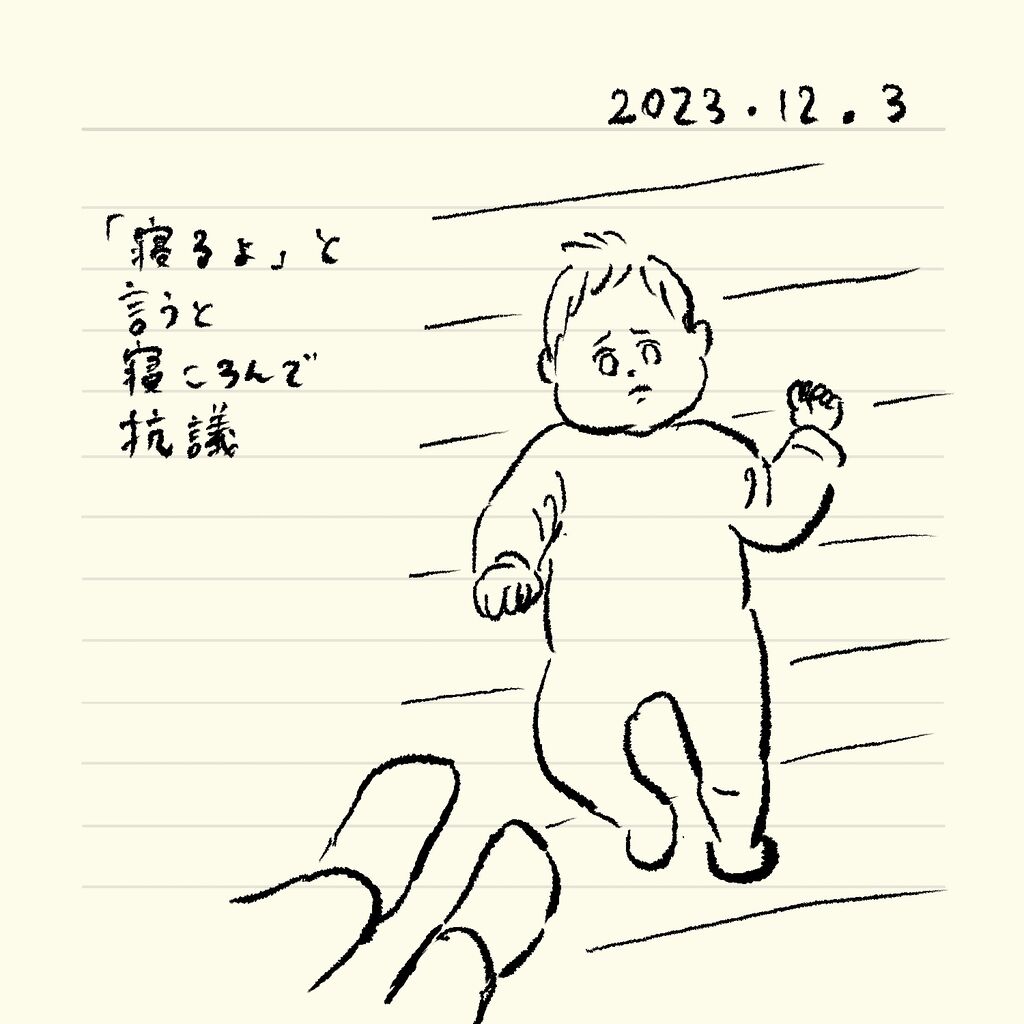 2023.12.3
「寝るよ」と
言うと
寝ころんで
抗議